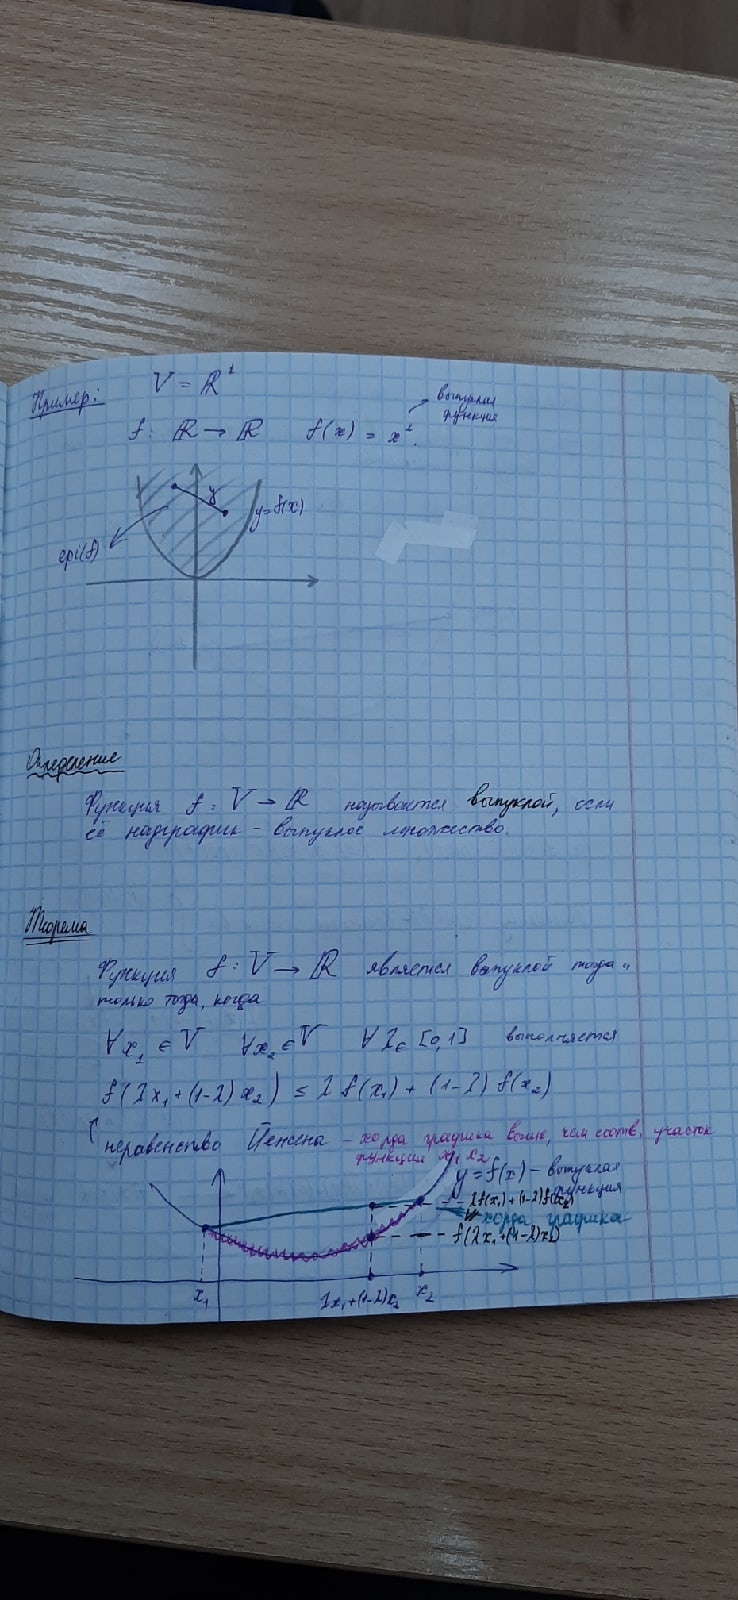 Пример: V = ℝ¹
выпуклая
функция
f: ℝ → ℝ f(x) = x².
γ
y=f(x)
epi(f)
Определение
Функция f: V → ℝ называется выпуклой, если
её надграфик - выпуклое множество.
Теорема
Функция f: V → ℝ является выпуклой тогда и
только тогда, когда
∀x₁ ∈ V ∀x₂ ∈ V ∀λ ∈ [0,1] выполняется
f(λx₁ + (1-λ)x₂) ≤ λf(x₁) + (1-λ)f(x₂)
неравенство Йенсена - хорда графика выше, чем соотв. участок
функции x₁ x₂
y = f(x) - выпуклая
функция
λf(x₁) + (1-λ)f(x₂)
хорда графика
f(λx₁ + (1-λ)x₂)
x₁ λx₁ + (1-λ)x₂ x₂